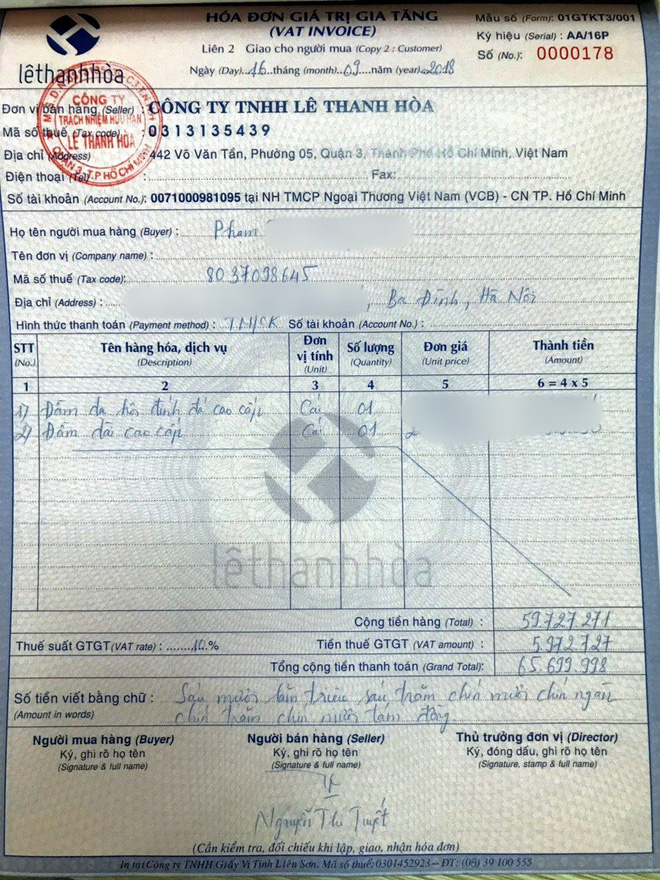 HÓA ĐƠN GIÁ TRỊ GIA TĂNG
(VAT INVOICE)
Liên 2 Giao cho người mua (Copy 2 : Customer)
Ngày (Day)..16..tháng (month)..09...năm (year)..2018
Mẫu số (Form): 01GTKT3/001
Ký hiệu (Serial) : AA/16P
Số (No.): 0000178
lêthanhhòa
CÔNG TY
TRÁCH NHIỆM HỮU HẠN
LÊ THANH HÒA
QUẬN 3 - T.P HỒ CHÍ MINH
Đơn vị bán hàng (Seller) : CÔNG TY TNHH LÊ THANH HÒA
Mã số thuế (Tax code) : 0313135439
Địa chỉ (Address) : 442 Võ Văn Tần, Phường 05, Quận 3, Thành Phố Hồ Chí Minh, Việt Nam
Điện thoại (Tel) : Fax:
Số tài khoản (Account No.): 0071000981095 tại NH TMCP Ngoại Thương Việt Nam (VCB) - CN TP. Hồ Chí Minh
Họ tên người mua hàng (Buyer) : Phạm
Tên đơn vị (Company name) :
Mã số thuế (Tax code): 8037098645
Địa chỉ (Address) : , Ba Đình, Hà Nội
Hình thức thanh toán (Payment method) : TM/CK Số tài khoản (Account No.) :
STT (No.) Tên hàng hóa, dịch vụ (Description) Đơn vị tính (Unit) Số lượng (Quantity) Đơn giá (Unit price) Thành tiền (Amount)
1 2 3 4 5 6 = 4 x 5
1) Đầm dạ hội đính đá cao cấp Cái 01
2) Đầm dài cao cấp Cái 01 2
lêthanhhòa
Cộng tiền hàng (Total) : 59.727.271
Thuế suất GTGT (VAT rate) : ........10..% Tiền thuế GTGT (VAT amount) : 5.972.727
Tổng cộng tiền thanh toán (Grand Total): 65.699.998
Số tiền viết bằng chữ : Sáu mươi lăm triệu sáu trăm chín mươi chín ngàn
(Amount in words) chín trăm chín mươi tám đồng
Người mua hàng (Buyer) Người bán hàng (Seller) Thủ trưởng đơn vị (Director)
Ký, ghi rõ họ tên Ký, ghi rõ họ tên Ký, đóng dấu, ghi rõ họ tên
(Signature & full name) (Signature & full name) (Signature, stamp & full name)
Nguyễn Thị Tuyết
(Cần kiểm tra, đối chiếu khi lập, giao, nhận hóa đơn)
In tại Công ty TNHH Giấy Vi Tính Liên Sơn. Mã số thuế: 0301452923 – ĐT: (08) 39 100 555